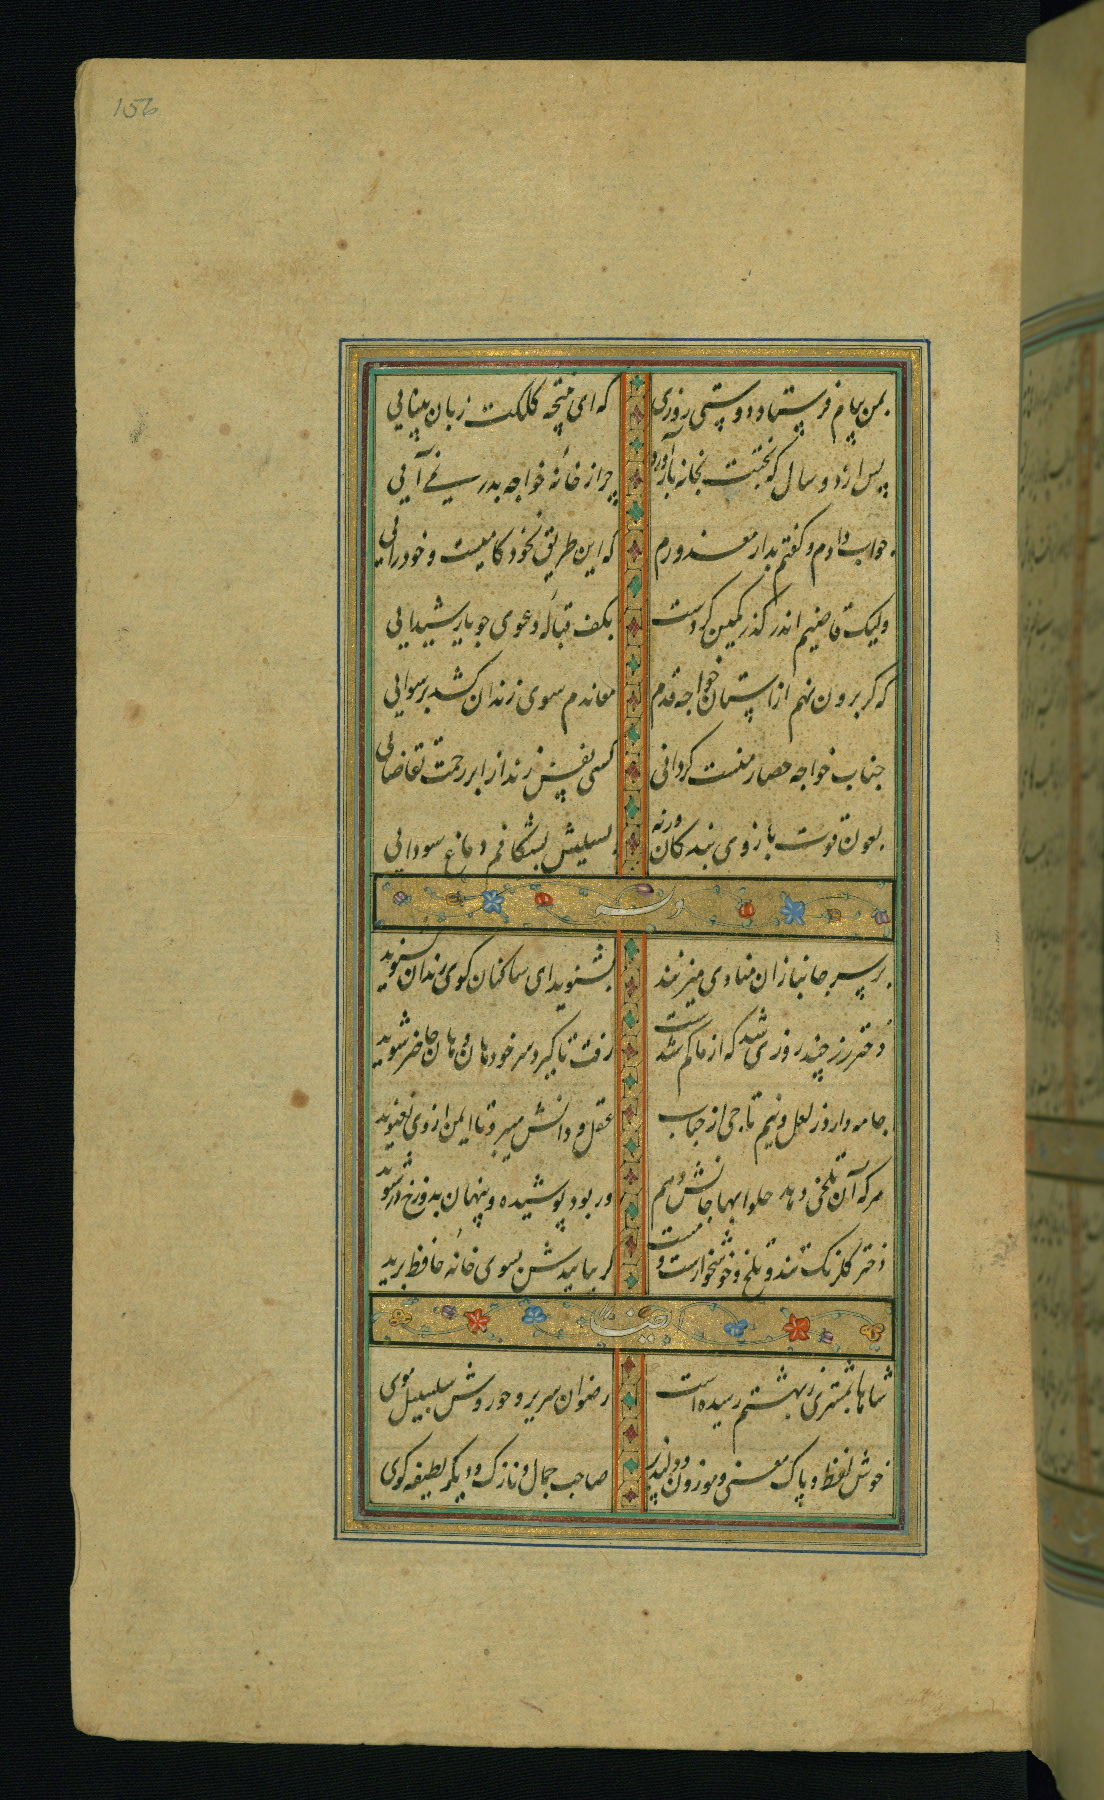 156
بمن پیام فرستاد دوستی روزی که ای نتیجه کلکت زبان بینایی
پس از دو سال که بختت بخانه بازآورد چرا از خانه خواجه بدر نمی آیی
جواب دادم و گفتم بدار معذورم که این طریق نخودکامیست و خودرایی
ولیک قاضیم اندر گذر کمین کردست بکف قباله دعوی چو یار شیدایی
که گر برون نهم از آستان خواجه قدم معاندم سوی زندان کشد برسوایی
جناب خواجه حصار منست گر دانی کسی نفس زند از ابر رحمت تقاضایی
بعون قوت بازوی بندگان ورنه بسیلیش بشکافم دماغ سودایی
وله
بر سر جانبازان منادی میزنند بشنوید ای ساکنان کوی رندان بشنوید
دختر رز چند روزی شد که از ما گم شدست رفت تا گیرد سر خود هان و هان حاضر شوید
جامه دارد ز لعل و نیم تاجی از حباب عقل و دانش میبرد تا ایمن از وی نغنوید
هرکه آن تلخی دهد حلوا بها جانش دهم ور بود پوشیده و پنهان بدوزخ در شوید
دختر گلرنگ تند و تلخ و خوشخوارست و مست گر بیابیدش بسوی خانه حافظ برید
ایضا
شاها مبشری ز بهشتم رسیده است رضوان سریر و حوروش سلسبیل موی
خوش لفظ و پاک معنی و موزون و دلپذیر صاحب جمال و نازک و دیگر لطیفه گوی